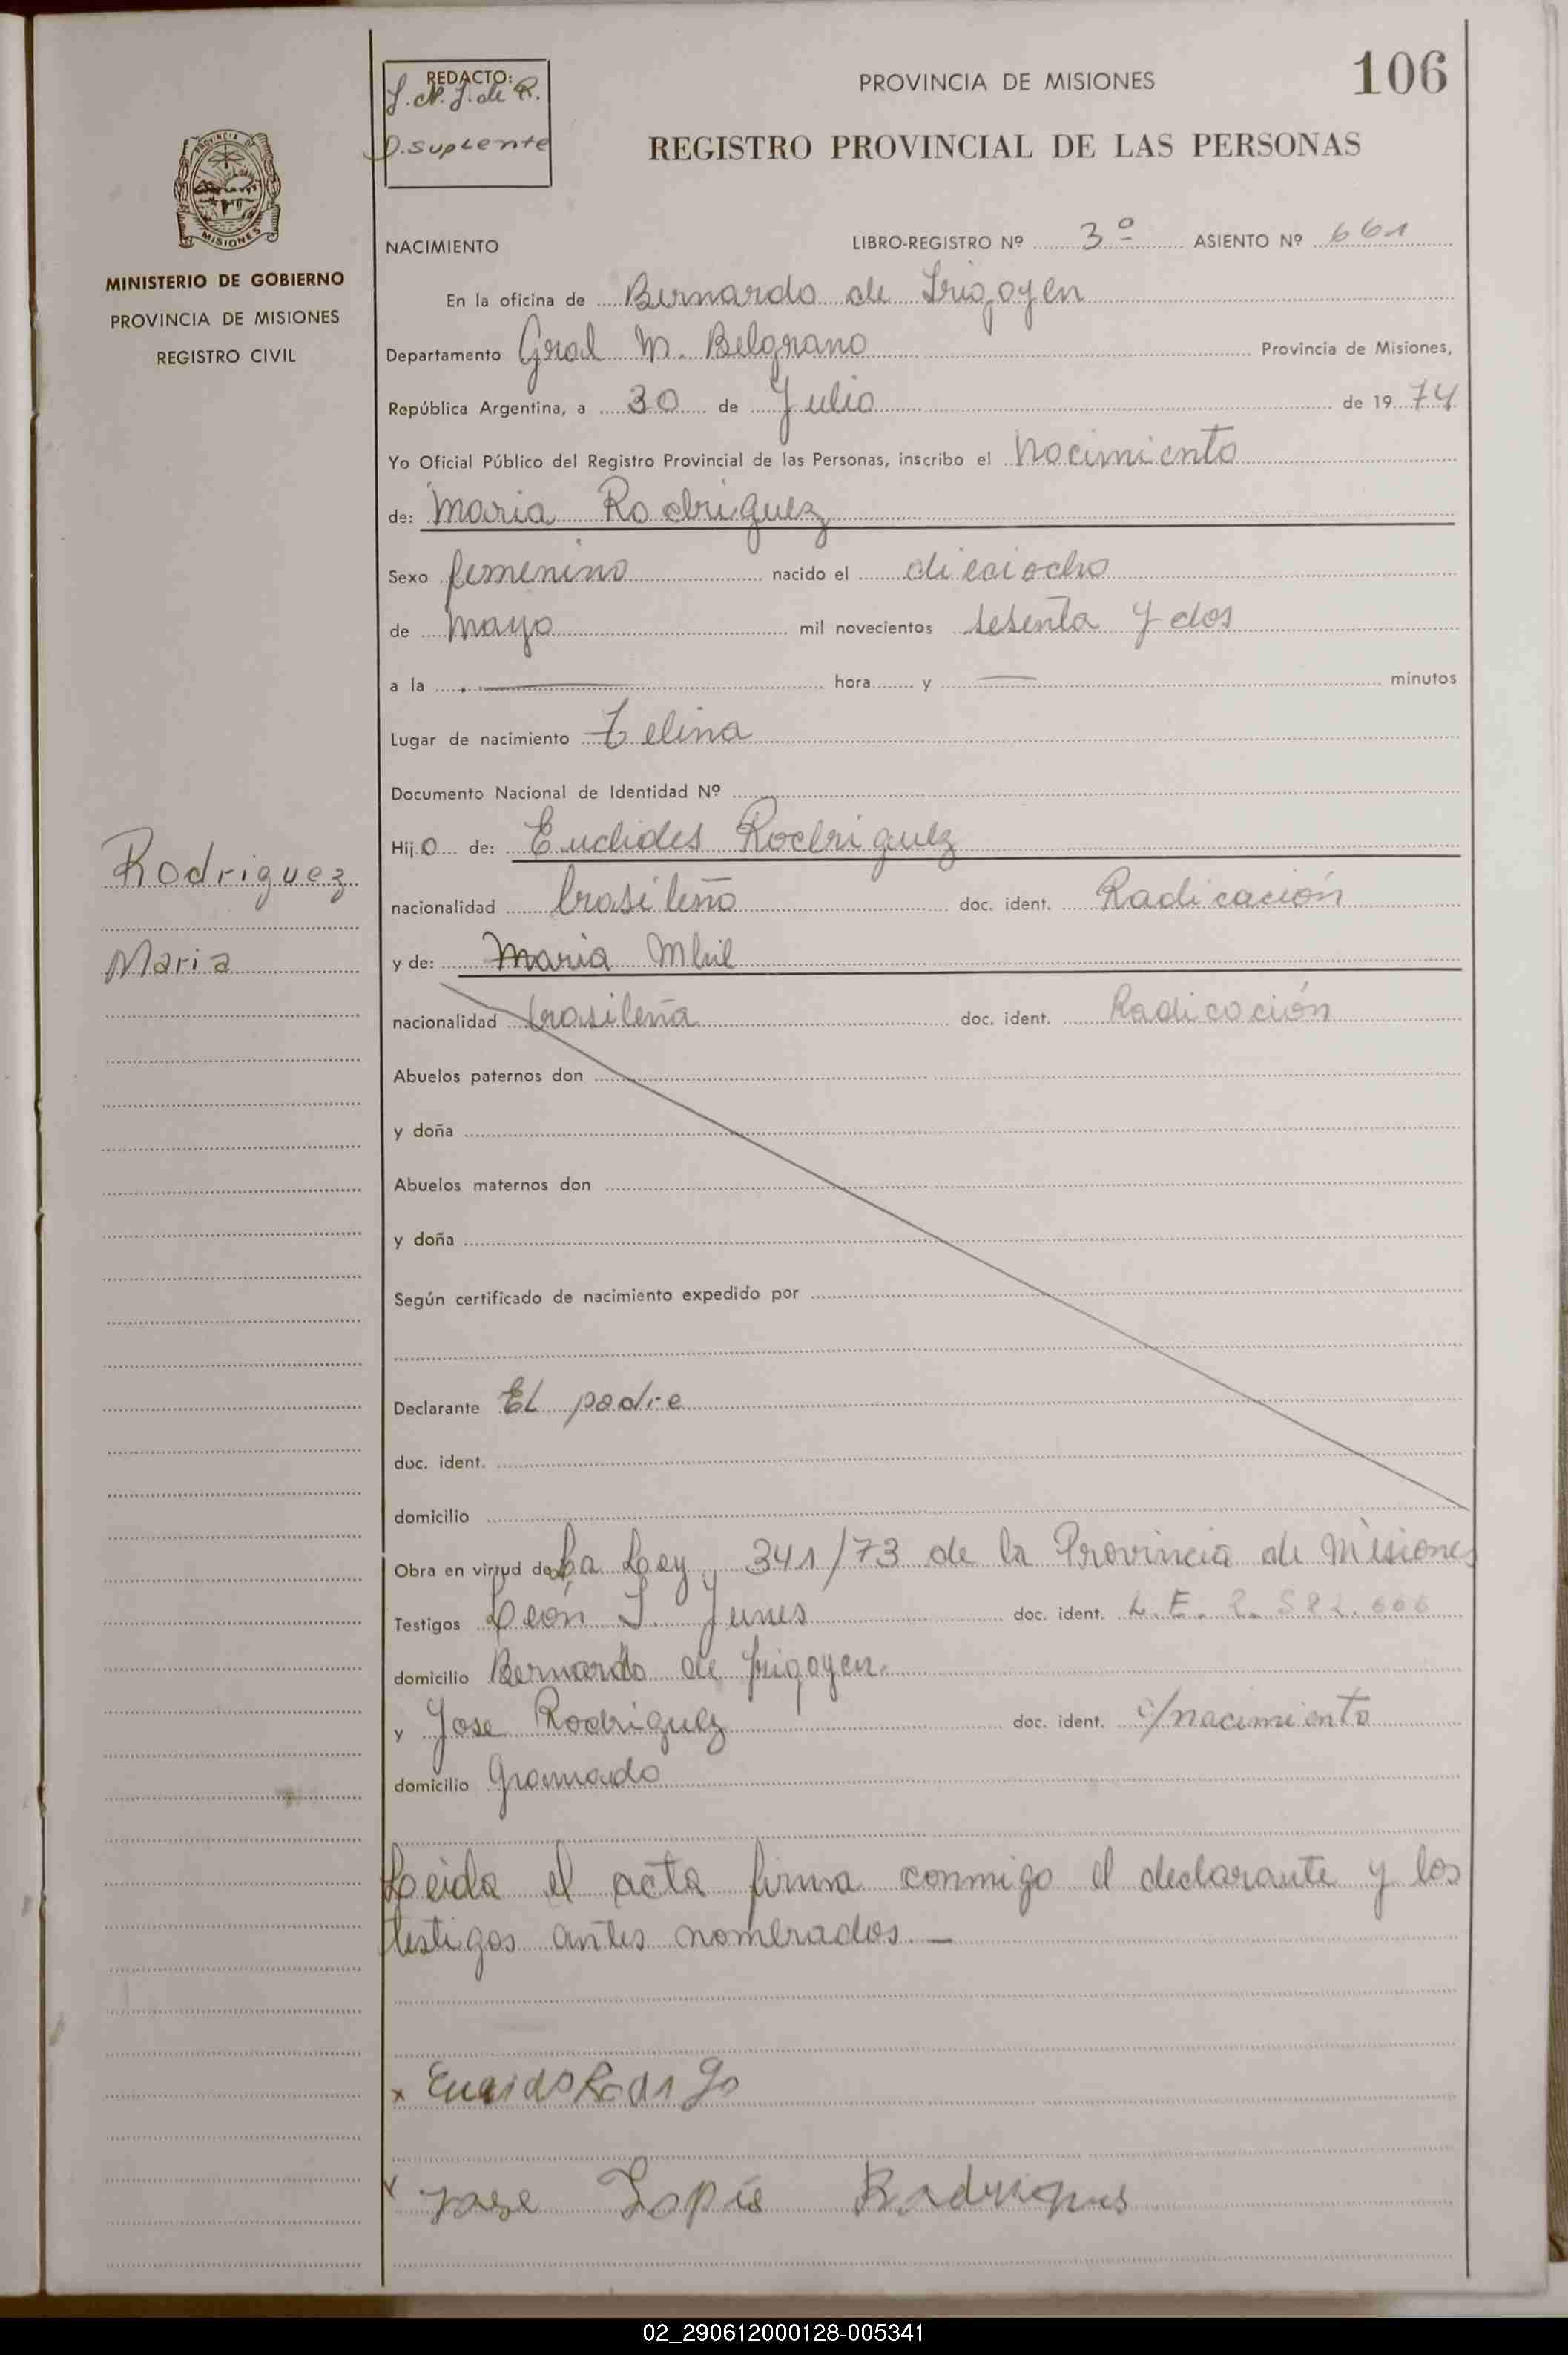 106
REDACTO:
D. Suplente
PROVINCIA DE MISIONES
REGISTRO PROVINCIAL DE LAS PERSONAS
PROVINCIA D
MISIONES
MINISTERIO DE GOBIERNO
PROVINCIA DE MISIONES
REGISTRO CIVIL
NACIMIENTO LIBRO-REGISTRO Nº 3º ASIENTO Nº 661
En la oficina de Bernardo de Irigoyen
Departamento Gral M. Belgrano Provincia de Misiones,
República Argentina, a 30 de Julio de 1974
Yo Oficial Público del Registro Provincial de las Personas, inscribo el Nacimiento
de: Maria Rodriguez
Sexo femenino nacido el dieciocho
de mayo mil novecientos sesenta y dos
a la hora y minutos
Lugar de nacimiento Zelina
Documento Nacional de Identidad Nº
Hijo de: Euclides Rodriguez
Rodriguez
nacionalidad brasileño doc. ident. Radicación
Maria
y de: Maria
nacionalidad brasileña doc. ident. Radicación
Abuelos paternos don
y doña
Abuelos maternos don
y doña
Según certificado de nacimiento expedido por
Declarante EL padre
doc. ident.
domicilio
Obra en virtud de La Ley 341/73 de la Provincia de Misiones
Testigos León doc. ident. L.E.
domicilio Bernardo de Irigoyen.
y Jose Rodriguez doc. ident. c/nacimiento
domicilio Gramado
Leida el acta firma conmigo el declarante y los
testigos antes nombrados. —
x
x Jose
02_290612000128-005341